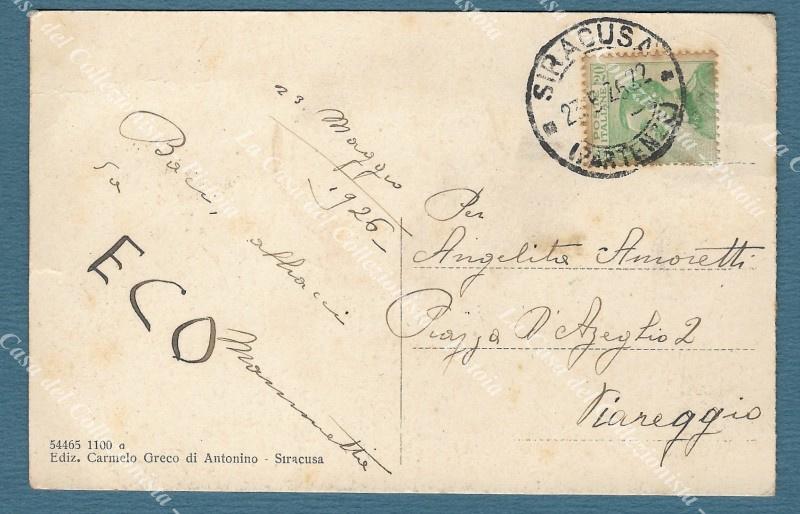 23 Maggio
1926
Baci, abbracci
ECO
Mammetta
54465 1100 a
Ediz. Carmelo Greco di Antonino - Siracusa
SIRACUSA
(PARTENZE)
POSTE
ITALIANE
20
Per
Angelita Amoretti
Piazza D'Azeglio 2
Viareggio
La Casa del Collezionista - Pistoia